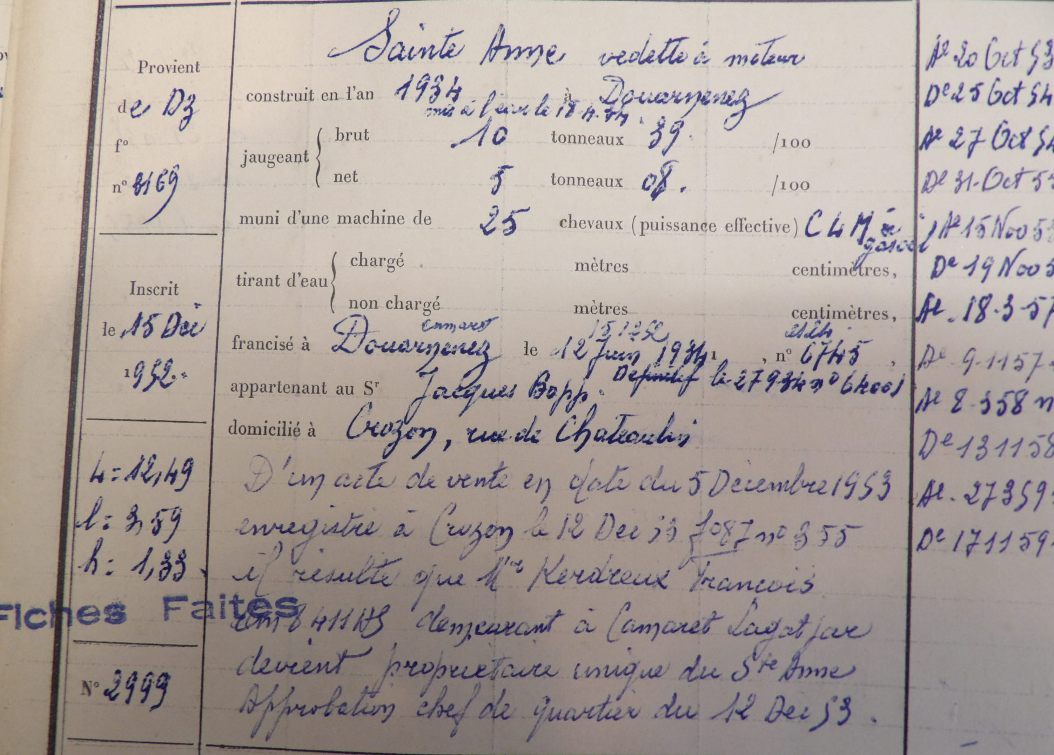 Provient
de Dz
f°
n° 3169
Inscrit
le 15 Dec
1952.
L = 12,49
l = 3,59
h = 1,33
Fiches Faites
N° 2999
Sainte Anne vedette à moteur
construit en l'an 1934 à Douarnenez
mis à l'eau le 18.4.34
jaugeant { brut 10 tonneaux 39. /100
net 5 tonneaux 08. /100
muni d'une machine de 25 chevaux (puissance effective) C L M
tirant d'eau { chargé mètres centimètres,
non chargé mètres centimètres,
Camaret 15.12.52
francisé à Douarnenez le 12 Juin 1934, n° 6745,
Définitif le 27 9 34 n°
appartenant au Sr Jacques Bopp.
domicilié à Crozon, rue de Chateaulin
D'un acte de vente en date du 5 Décembre 1953
enregistré à Crozon le 12 Dec 53 f° 87 n° 355
il résulte que Mr Kerdreux François
demeurant à Camaret Lagatjar
devient propriétaire unique du Ste Anne
Approbation chef de quartier du 12 Dec 53.
Al 20 Oct 53
De 25 Oct 54
Al 27 Oct 54
De 31 Oct
Al 15 Nov
De 19 Nov
Al. 18.3.57
De 9.11 57
Al 8.3 58
De 13 11 58
Al. 27 3 59
De 17 11 59